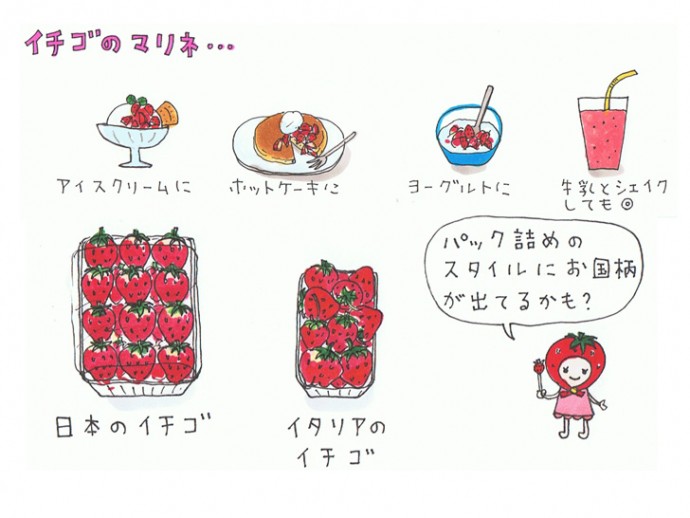 イチゴのマリネ・・・
アイスクリームに
ホットケーキに
ヨーグルトに
牛乳とシェイク
しても◎
パック詰めの
スタイルにお国柄
が出てるかも?
日本のイチゴ
イタリアの
イチゴ